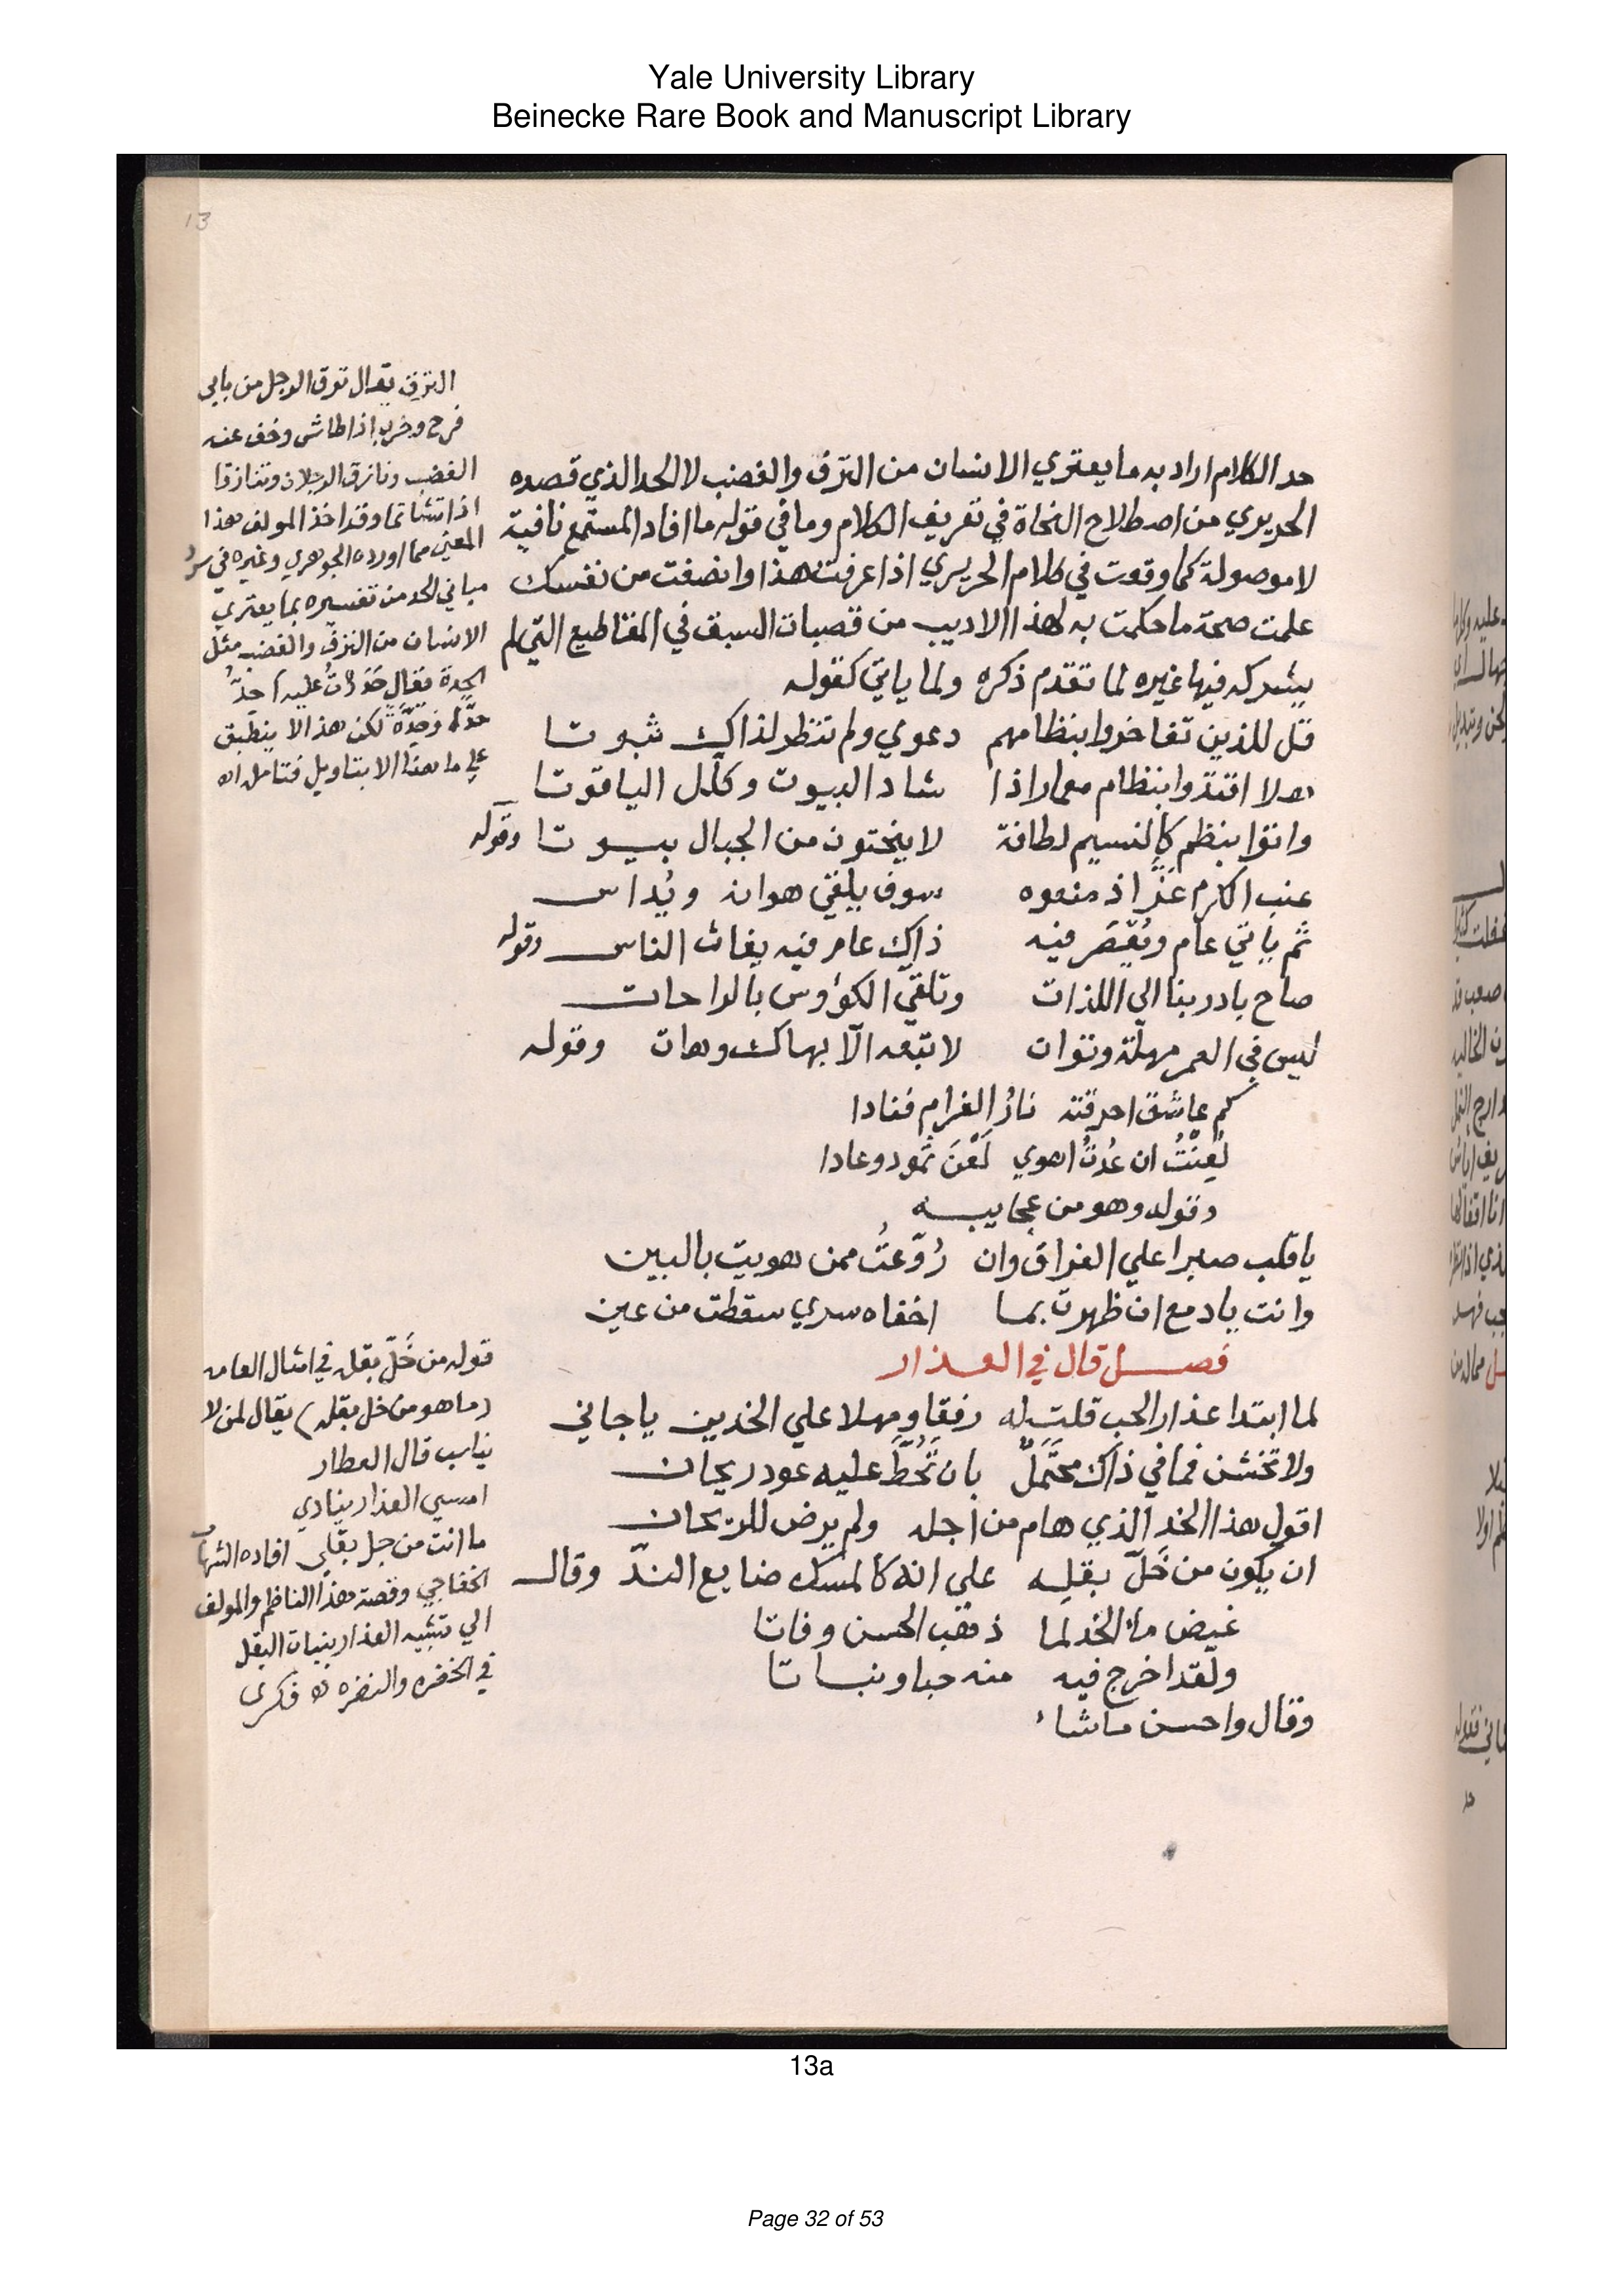 Yale University Library
Beinecke Rare Book and Manuscript Library
13
حد الكلام اراد به ما يعتري الانسان من النزق والغضب لا الحد الذي قصده
الحريري من اصطلاح النحاة في تعريف الكلام وما في قوله ما افاد المستمع نافية
لا موصولة كما وقعت في كلام الحريري اذا عرفت هذا وانصفت من نفسك
علمت صحة ما حكمت به لهذا الاديب من قصبات السبق في المقاطيع التي لم
يشركه فيها غيره لما تقدم ذكره ولما ياتي كقوله
قل للذين تفاخروا بنظامهم دعوي ولم تنظر لذاك ثبوتا
هلا اقتدوا بنظام معمار اذا شاد البيوت وكلل الياقوتا
واتوا بنظم كالنسيم لطافة لا ينحتون من الجبال بيوتا وقوله
عنب الكرم عَزَّ اذ منعوه سوف يلقي هوان ويُداس
ثم ياتي عام ويُعْصَر فيه ذاك عام فيه يغاث الناس وقوله
صاح بادر بنا الي اللذات وتلقي الكؤوس بالراحات
ليس في العمر مهلة وتوان لا تبعه الّا بهاك وهات وقوله
كم عاشق احرقته نارُ الغرام فنادا
لُعِنْتُ ان عُدتُ اهوي لَعْنَ ثمود وعادا
وقوله وهو من عجايبه
يا قلب صبرا علي الفراق وان رُوّعتُ ممن هويت بالبين
وانت يا دمع ان ظهرت بما اخفاه سري سقطت من عين
فصل قال في العذار
لما ابتدا عذار الحب قلت له رفقا ومهلا علي الخدين يا جاني
ولا تخشن فما في ذاك محتَمَلٌ بان تُحُطَّ عليه عود ريحان
اقول هذا الخد الذي هام من اجله ولم يرض للريحان
ان يكون من خَلّ بقلِه علي انه كالمسك ضايع الندّ وقال
غيض ماء الخد لما ذهب الحسن وفاتا
ولقد اخرج فيه منه حبا ونباتا
وقال واحسن ما شاء
النزق يقال نزق الرجل من بابي
فرح وضرب اذا طاش وخف عند
الغضب ونازق الرجلان وتنازقا
اذا تشاتما وقد اخذ المولف هذا
المعني مما اورده الجوهري وغيره في سرد
مباني الحد من تفسيره بما يعتري
الانسان من النزق والغضب مثل
الحِدة فقال حَدَدْتُ عليه احِدُّ
حدّة وحِدَّةً لكن هذا لا ينطبق
علي ما هنا الا بتاويل فتامل اه
قوله من خَلّ بقله في امثال العامه
(ما هو من خل بقله) يقال لمن لا
يناسب قال العطار
امسي العذار ينادي
ما انت من خل بقلي افاده الشهاب
الخفاجي وقصد هذا الناظم والمولف
الي تشبيه العذار بنبات البقل
في الخضره والنضره اه فكري
13a
Page 32 of 53